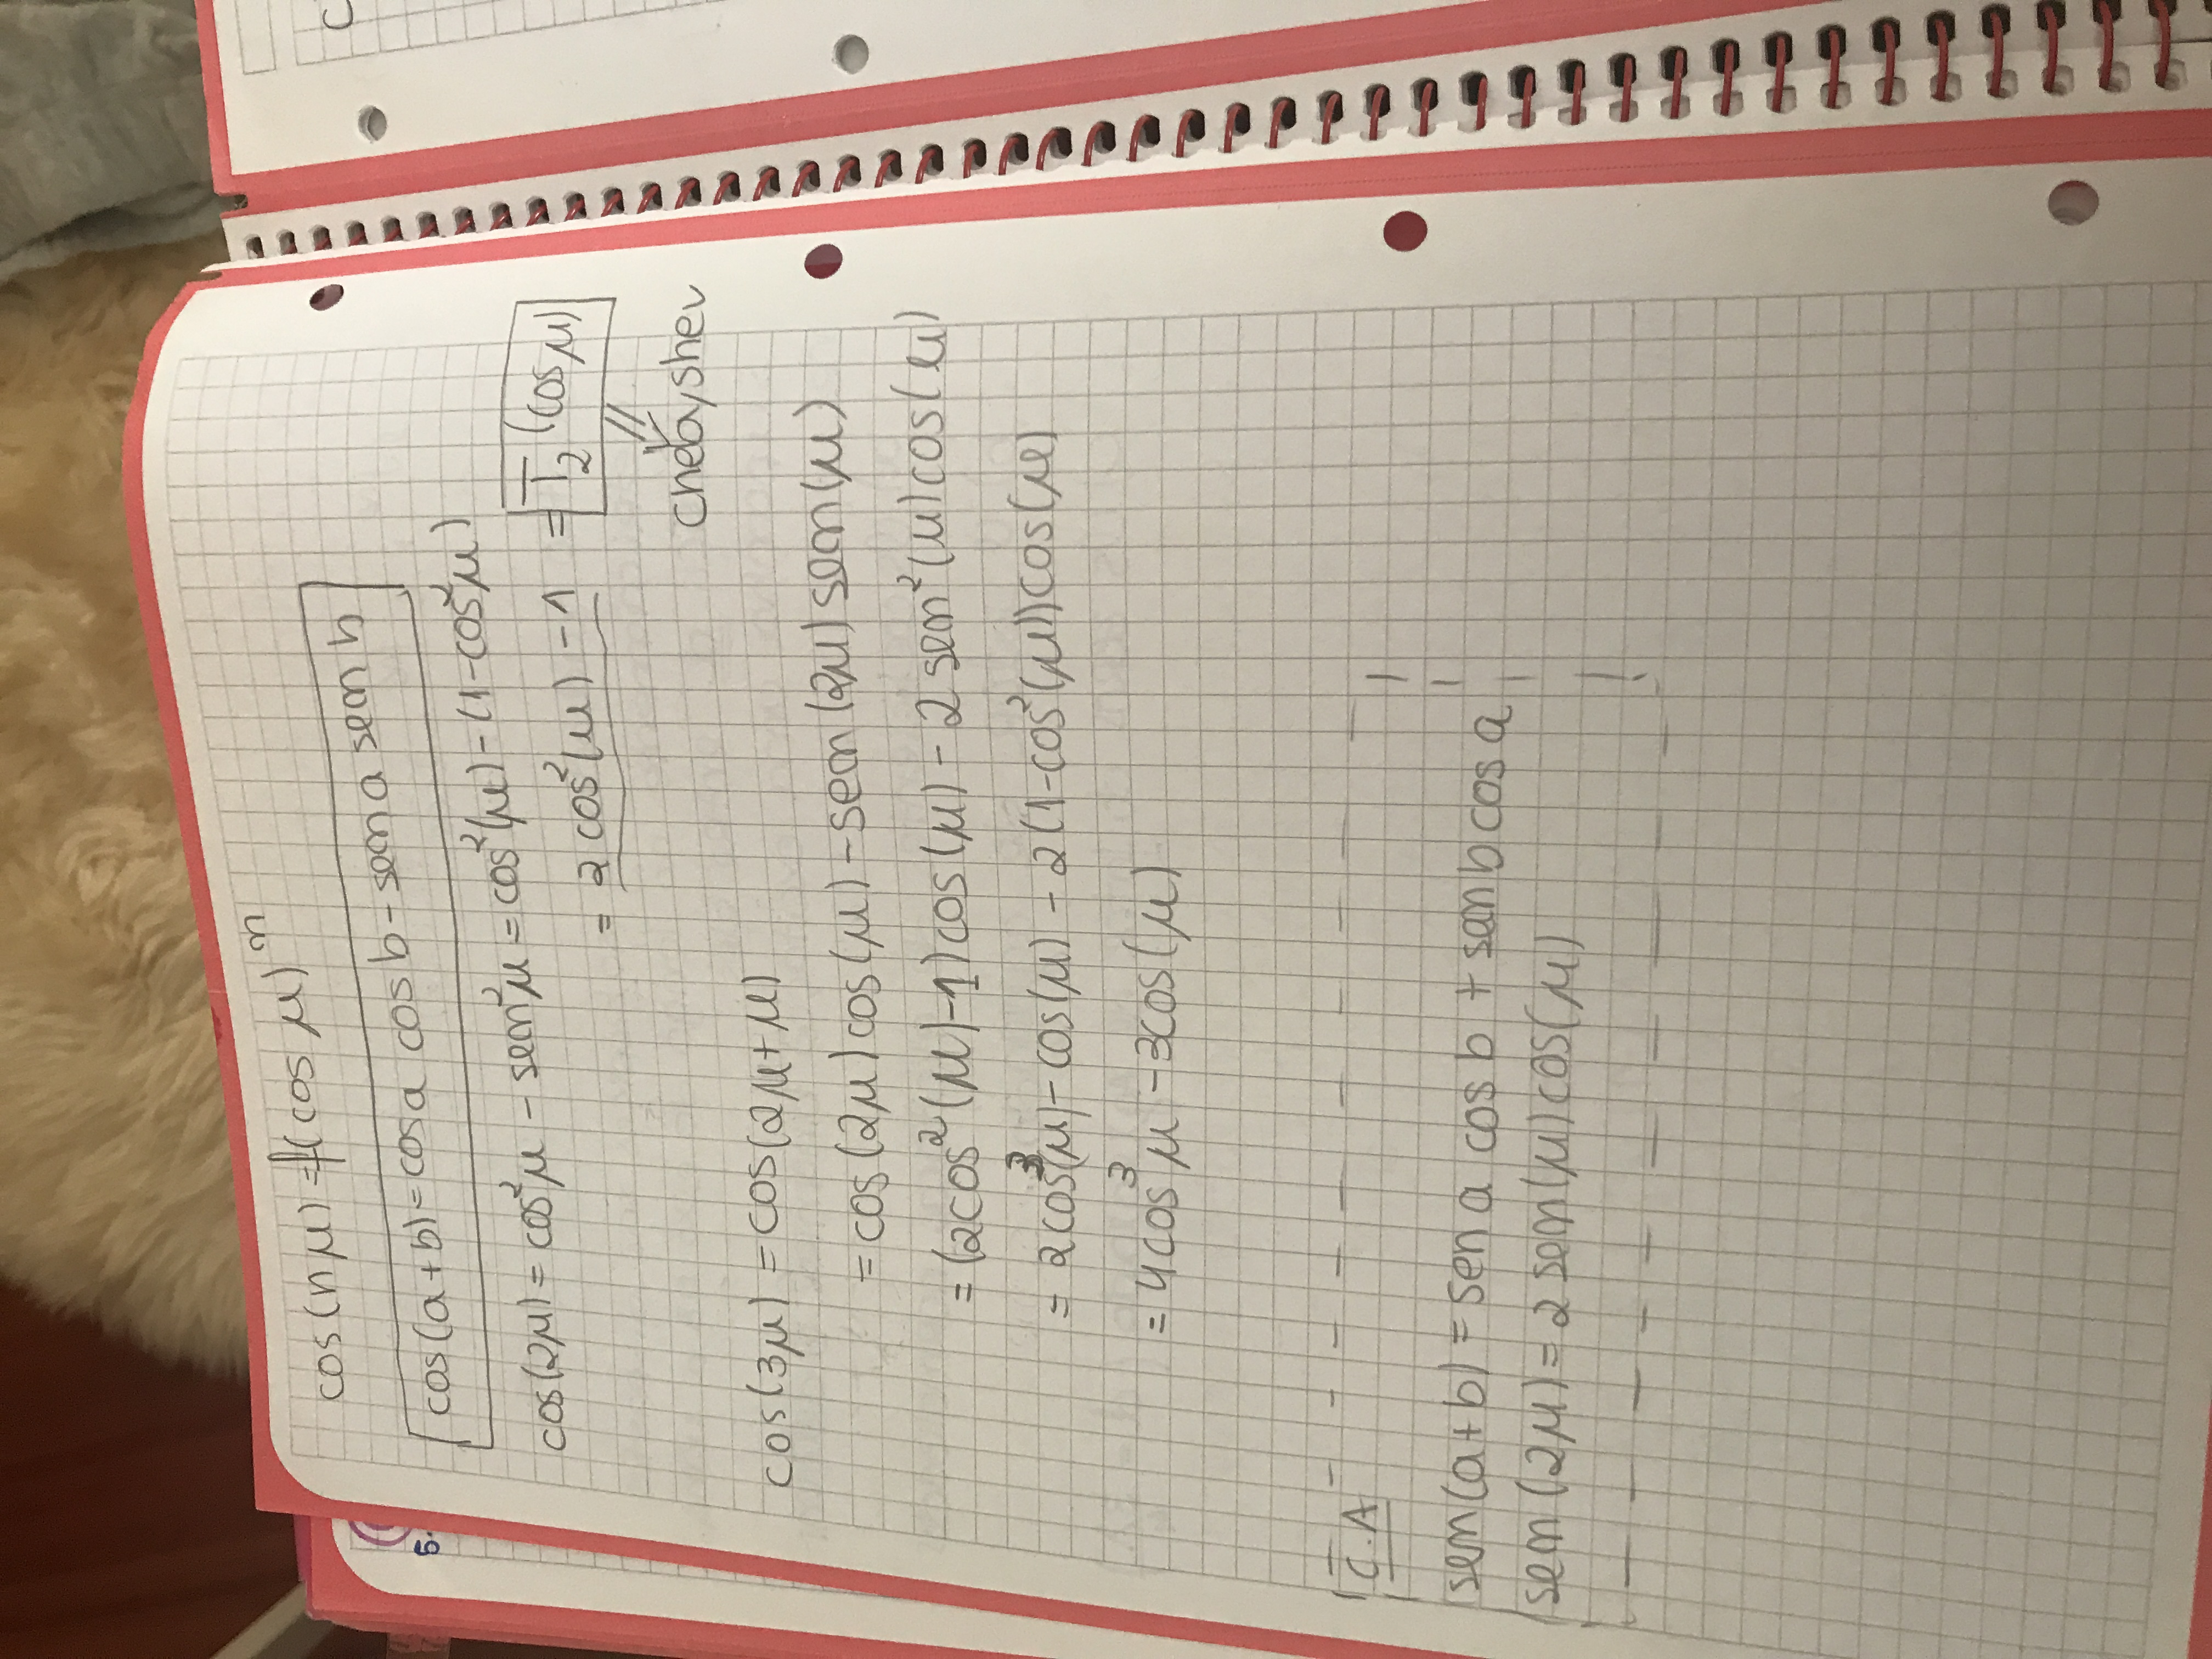 cos(nμ) = f(cos μ)^n
cos(a+b) = cos a cos b - sen a sen b
cos(2μ) = cos²μ - sen²μ = cos²(μ) - (1-cos²μ)
= 2cos²(μ) - 1 = T₂(cos μ)
Chebyshev
cos(3μ) = cos(2μ+μ)
= cos(2μ)cos(μ) - sen(2μ)sen(μ)
= (2cos²(μ)-1)cos(μ) - 2sen²(μ)cos(μ)
= 2cos³(μ) - cos(μ) - 2(1-cos²(μ))cos(μ)
= 4cos³μ - 3cos(μ)
C.A
sen(a+b) = sen a cos b + sen b cos a
sen(2μ) = 2sen(μ)cos(μ)
5.
C